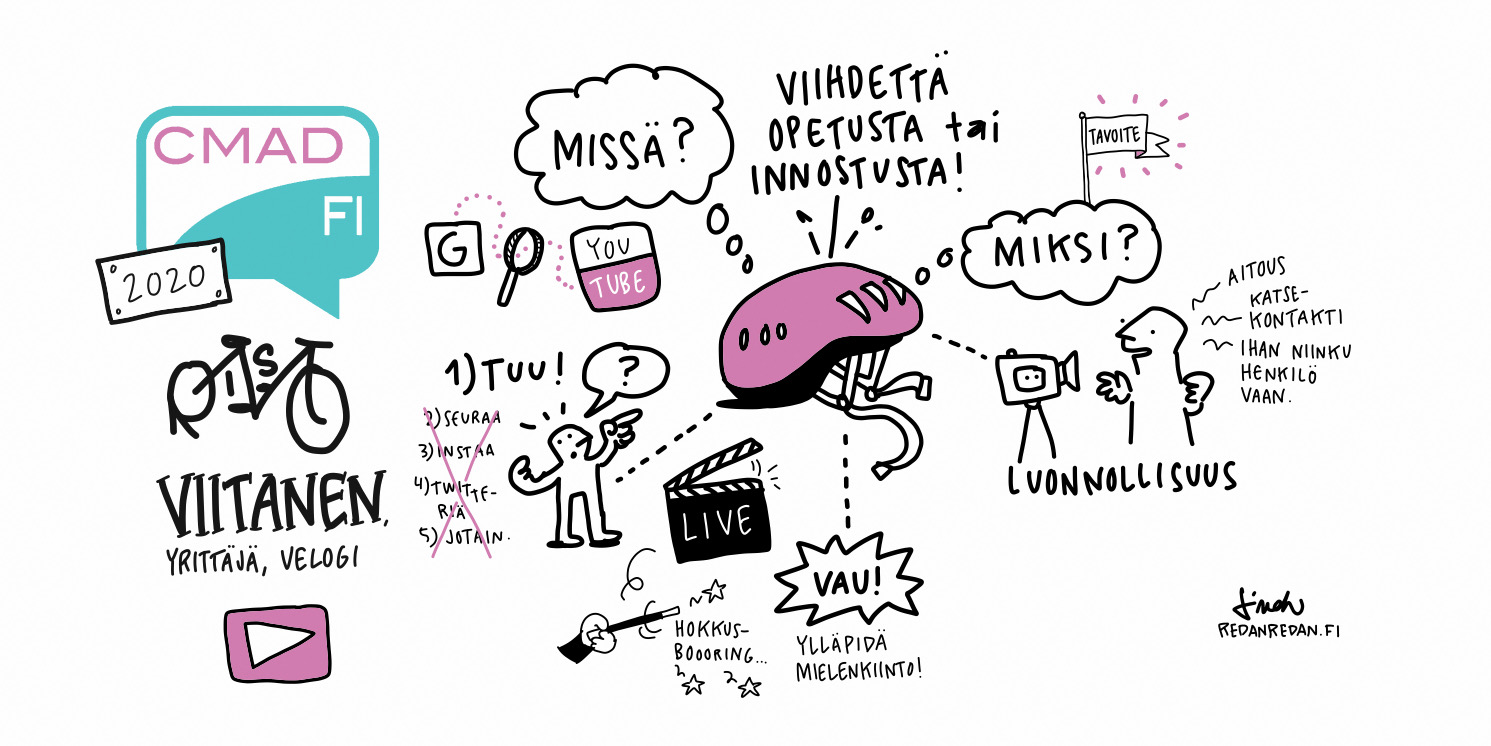 CMAD
FI
2020
RIS
VIITANEN,
YRITTÄJÄ, VELOGI
MISSÄ?
G
YOU
TUBE
VIIHDETTÄ
OPETUSTA tai
INNOSTUSTA!
TAVOITE
MIKSI?
1) TUU!
?
2) SEURAA
3) INSTAA
4) TWITTE-
RIÄ
5) JOTAIN.
LIVE
HOKKUS-
BOOORING...
VAU!
YLLÄPIDÄ
MIELENKIINTO!
AITOUS
KATSE-
KONTAKTI
IHAN NIINKU
HENKILÖ
VAAN.
LUONNOLLISUUS
REDANREDAN.FI